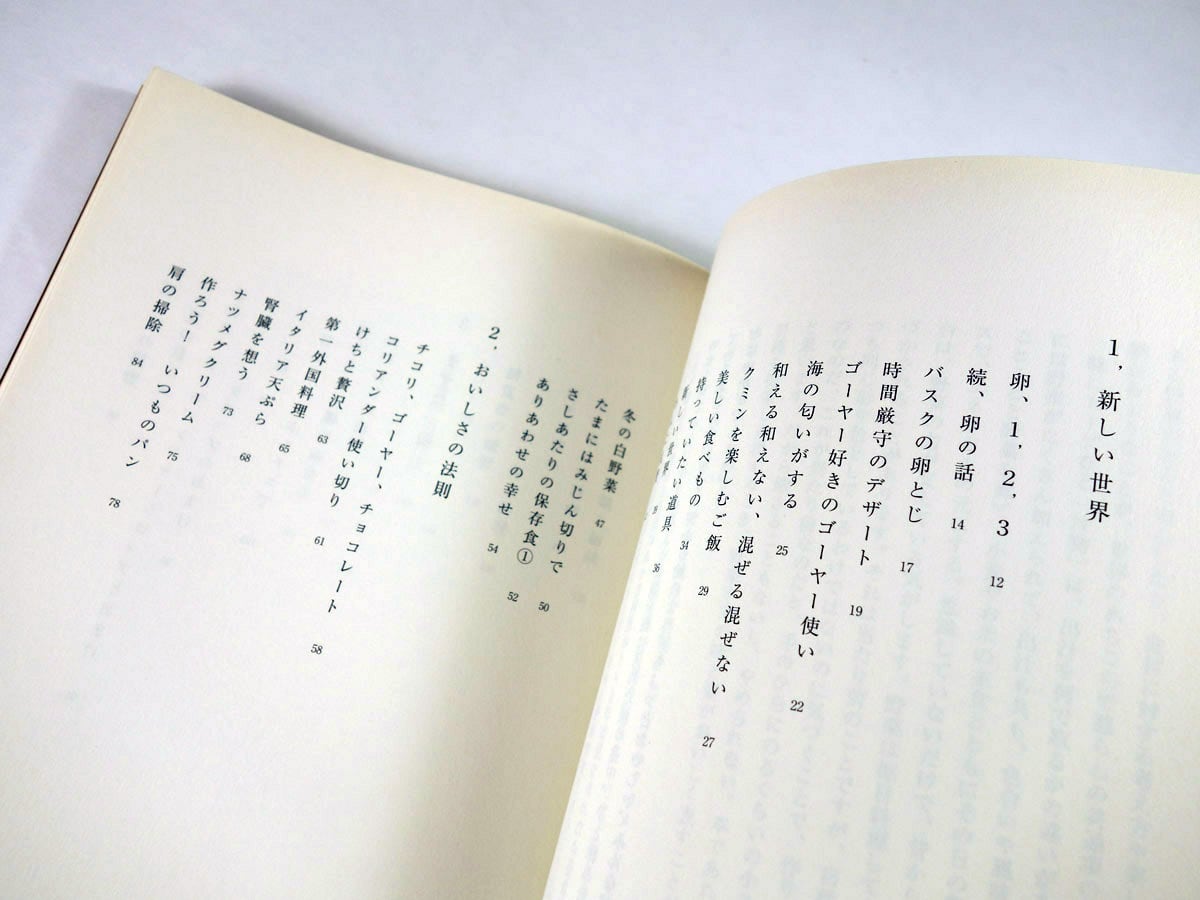 1, 新しい世界
卵、1, 2, 3 12
続、卵の話 14
バスクの卵とじ 17
時間厳守のデザート 19
ゴーヤー好きのゴーヤー使い 22
海の匂いがする 25
和える和えない、混ぜる混ぜない 27
クミンを楽しむご飯 29
美しい食べもの 34
持っていたい道具 36
新しい世界
冬の白野菜 47
たまにはみじん切りで 50
さしあたりの保存食① 52
ありあわせの幸せ 54
2, おいしさの法則
チコリ、ゴーヤー、チョコレート 58
コリアンダー使い切り 61
けちと贅沢 63
第一外国料理 65
イタリア天ぷら 68
腎臓を想う 73
ナツメグクリーム 75
作ろう！ いつものパン 78
肩の掃除 84